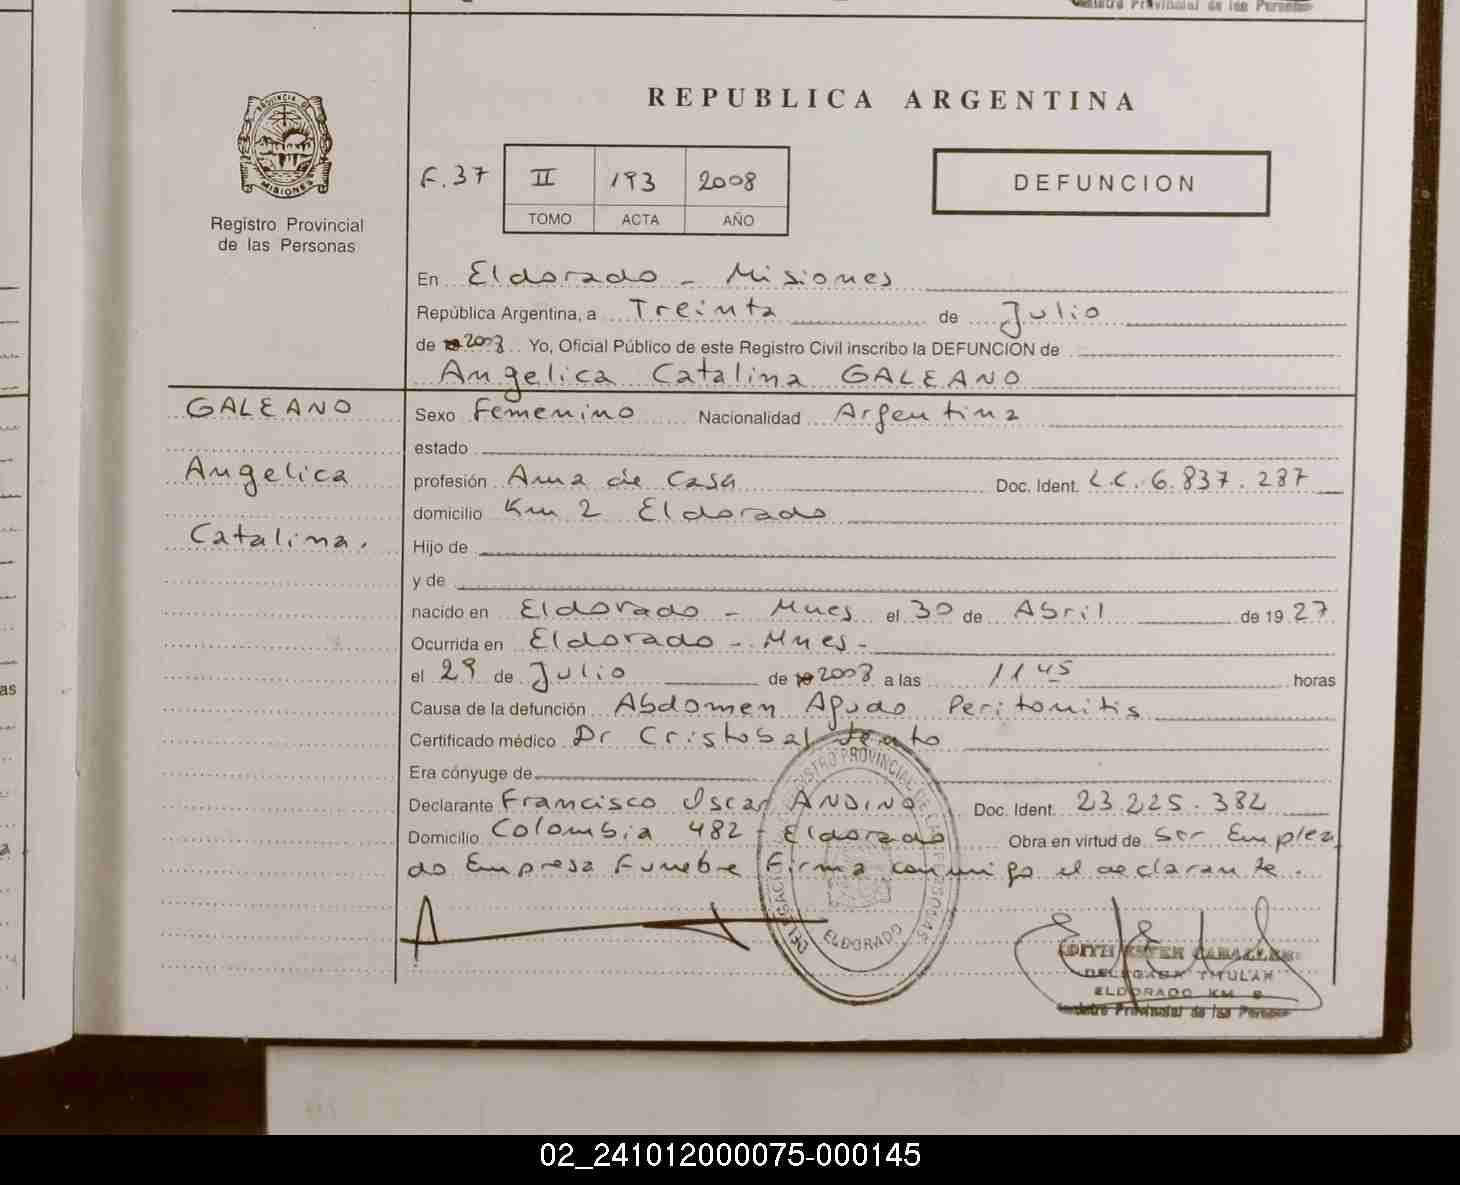 Registro Provincial de las Personas
REPUBLICA ARGENTINA
PROVINCIA DE MISIONES
Registro Provincial
de las Personas
F. 37
II 193 2008
TOMO ACTA AÑO
DEFUNCION
En Eldorado - Misiones
República Argentina, a Treinta de Julio
de 2008 Yo, Oficial Público de este Registro Civil inscribo la DEFUNCION de
Angelica Catalina GALEANO
GALEANO
Angelica
Catalina.
Sexo Femenino Nacionalidad Argentina
estado
profesión Ama de Casa Doc. Ident. L.C. 6.837.287
domicilio Km 2 Eldorado
Hijo de
y de
nacido en Eldorado - Mnes el 30 de Abril de 19 27
Ocurrida en Eldorado - Mnes -
el 29 de Julio de 2008 a las 11 45 horas
Causa de la defunción Abdomen Agudo Peritonitis
Certificado médico Dr Cristobal
Era cónyuge de
Declarante Francisco Oscar ANDINO Doc. Ident. 23.225.382
Domicilio Colombia 482 - Eldorado Obra en virtud de Ser Emplea
do Empresa Funebre Firma conmigo el declarante.
DELEGACION REGISTRO PROVINCIAL DE LAS PERSONAS
ELDORADO
EDITH ESTER CABALLERO
DELEGADA TITULAR
ELDORADO KM 8
Registro Provincial de las Personas
as
02_241012000075-000145